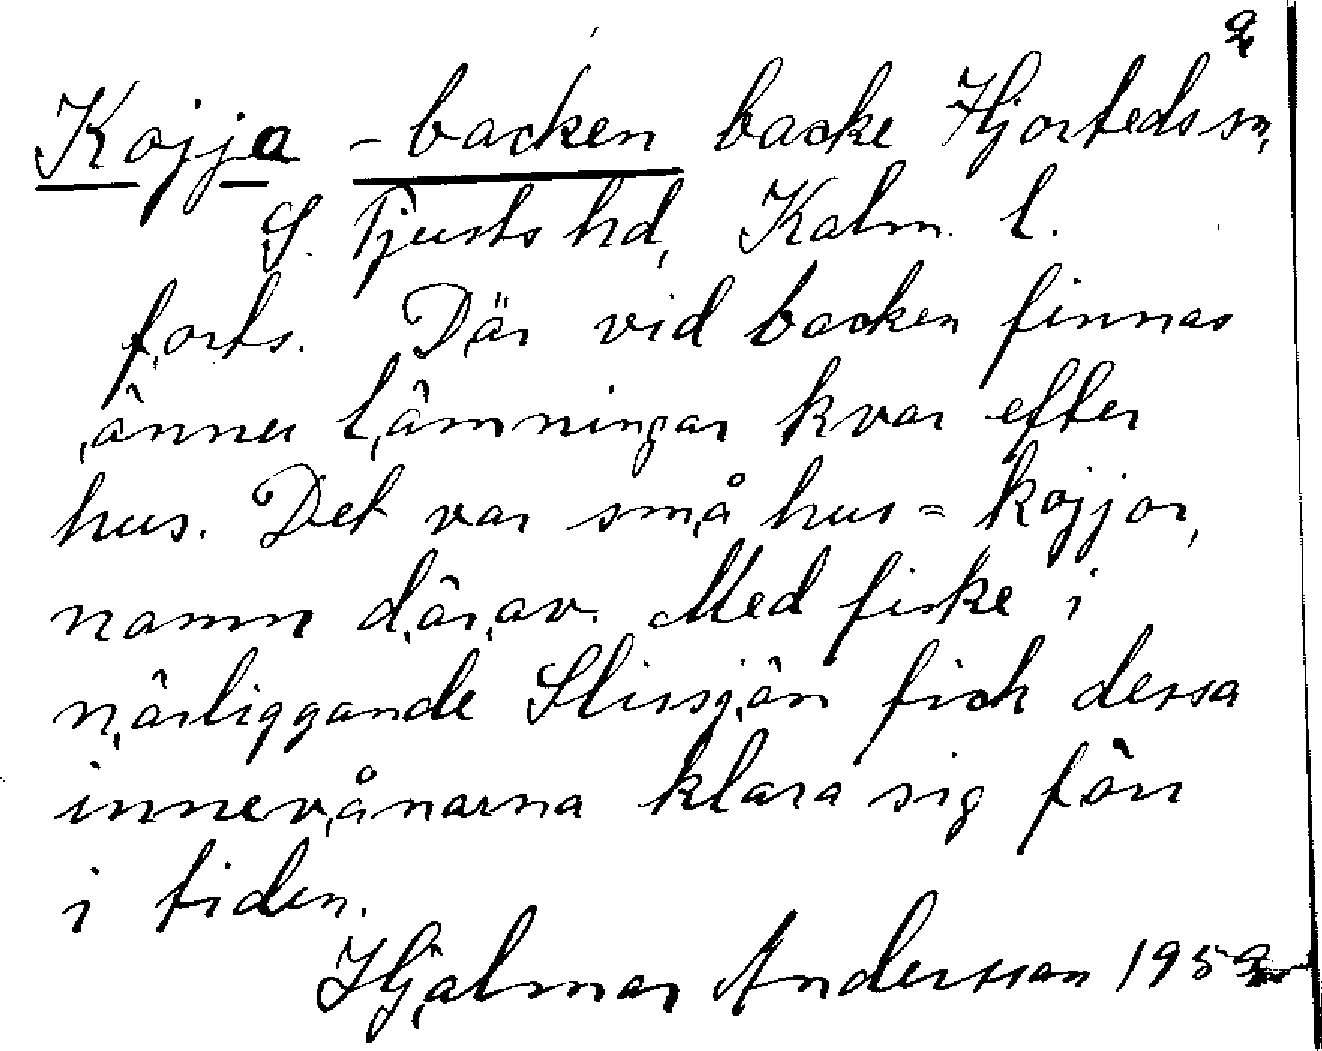 2
Kojja-backen backe Hjorteds sn,
S. Tjusts hd, Kalm. l.
forts. Där vid backen finnas
ännu lämningar kvar efter
hus. Det var små hus = kojjor,
namn därav. Med fiske i
närliggande Slissjön fick dessa
innevånarna klara sig förr
i tiden.
Hjalmar Andersson 1952